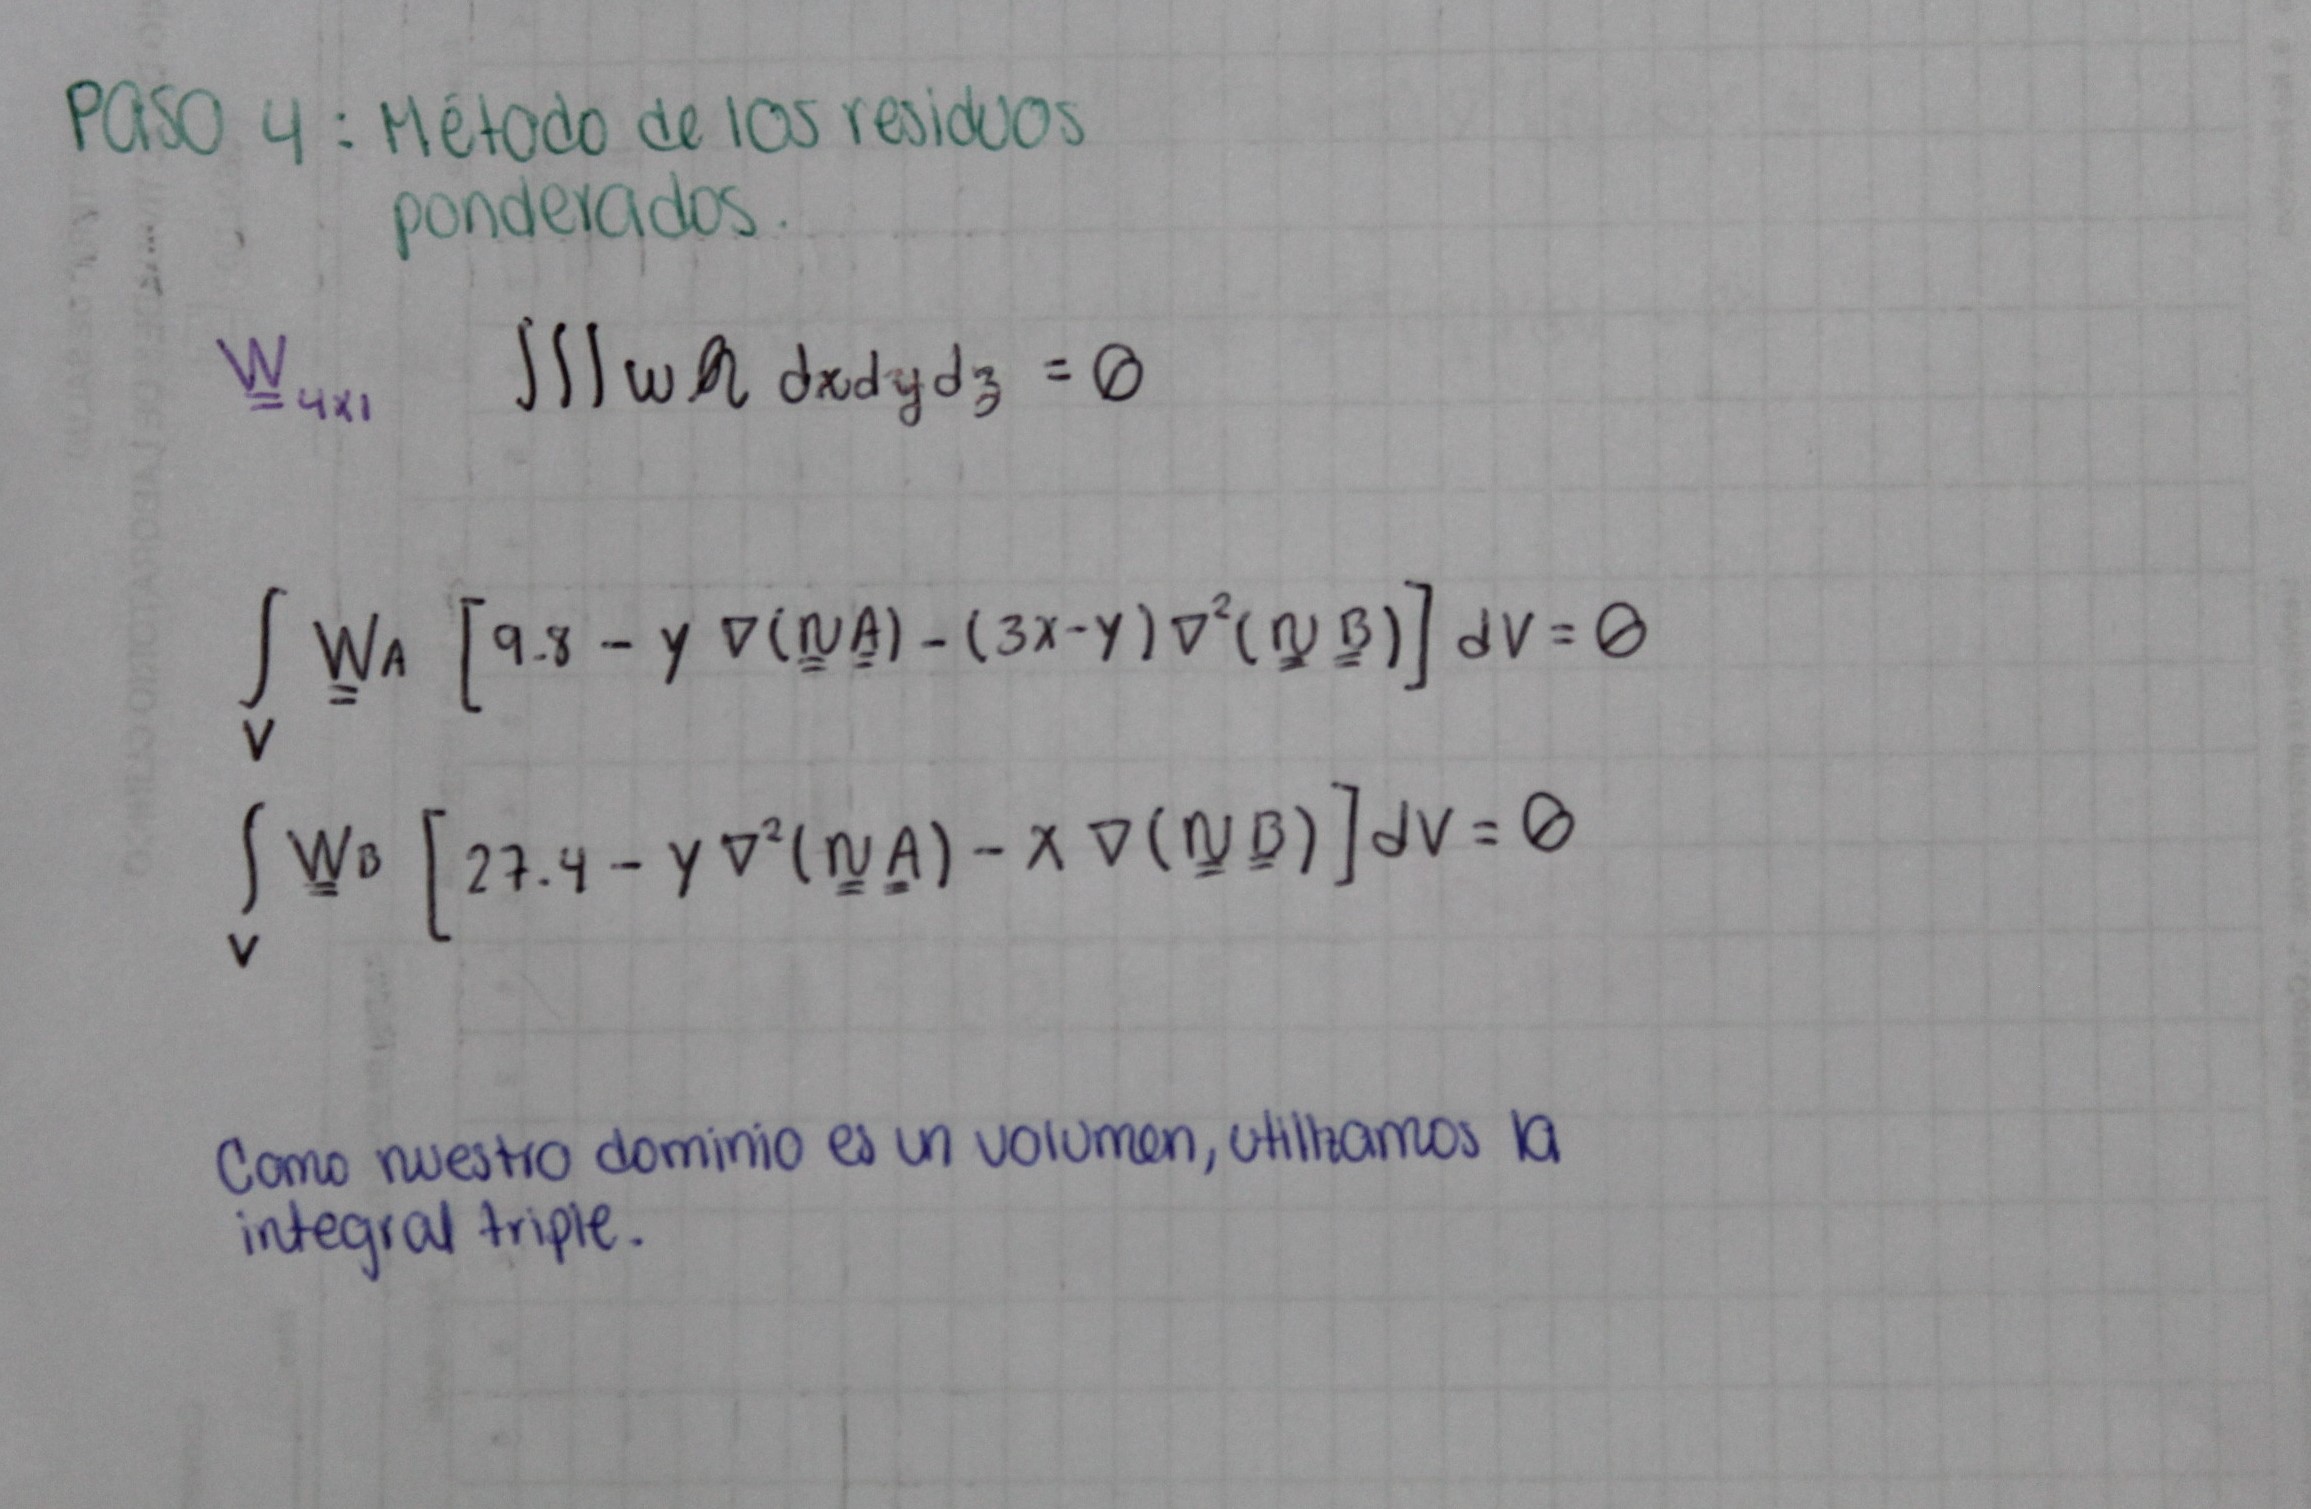 Paso 4: Método de los residuos
ponderados.
W 4x1 ∫∫∫ w R dxdydz = 0
∫V WA [9.8 - y ∇(N A) - (3x-y) ∇²(N B)] dV = 0
∫V WB [27.4 - y ∇²(N A) - x ∇(N B)] dV = 0
Como nuestro dominio es un volumen, utilizamos la
integral triple.